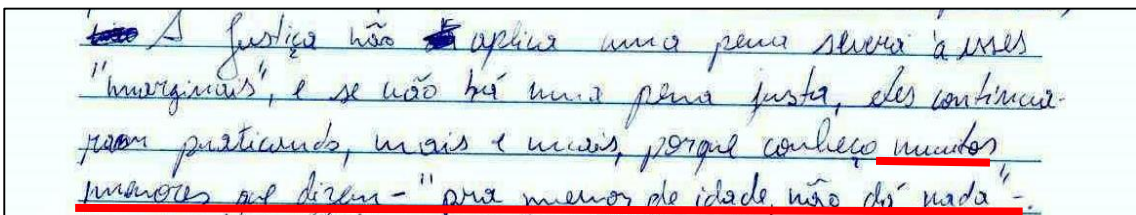 A Justiça não aplica uma pena severa à esses
"marginais", e se não há uma pena justa, eles continua-
ram praticando, mais e mais, porque conheço muitos
menores que dizem - "pra menor de idade não dá nada" -.